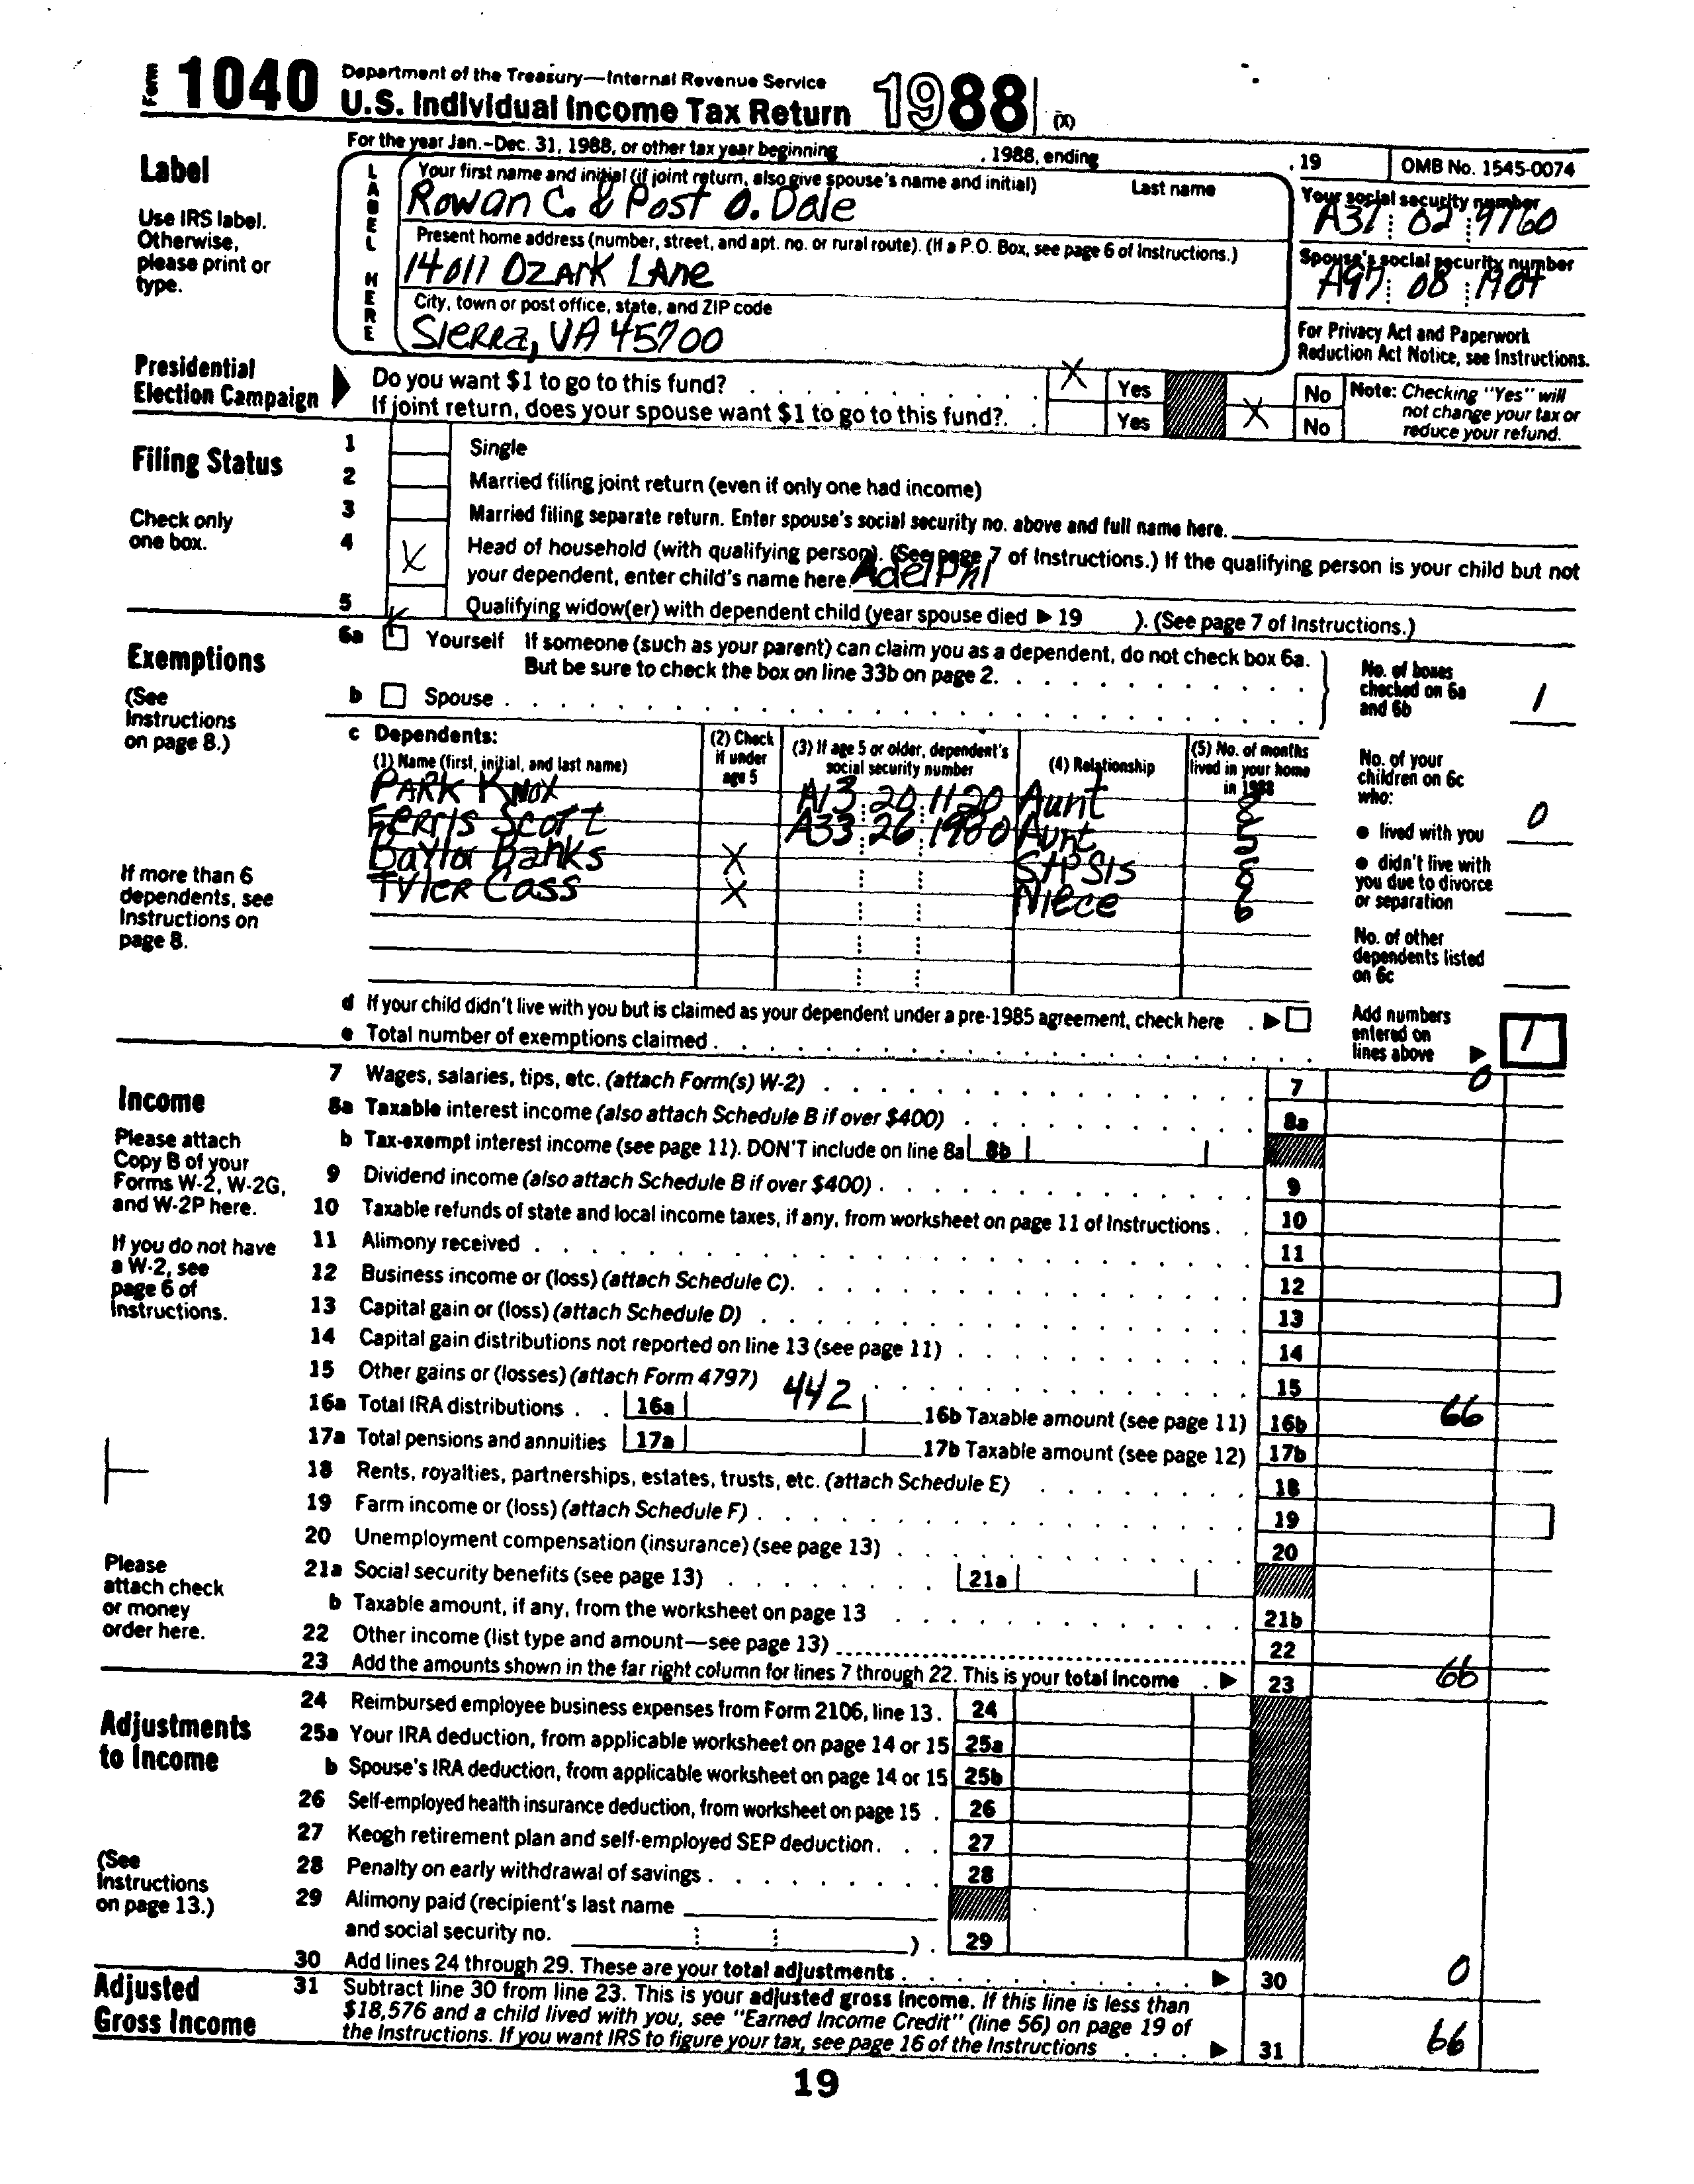 Form 1040 Department of the Treasury—Internal Revenue Service
U.S. Individual Income Tax Return 1988 (X)
For the year Jan.–Dec. 31, 1988, or other tax year beginning , 1988, ending , 19 OMB No. 1545-0074
Label
Use IRS label.
Otherwise,
please print or
type.
LABEL HERE
Your first name and initial (if joint return, also give spouse's name and initial) Last name
Rowan C. & Post O. Dale
Your social security number
A31 02 9760
Present home address (number, street, and apt. no. or rural route). (If a P.O. Box, see page 6 of Instructions.)
14011 OZARK LAne
Spouse's social security number
A97 08
City, town or post office, state, and ZIP code
SIERRa, VA 45700
For Privacy Act and Paperwork
Reduction Act Notice, see Instructions.
Presidential
Election Campaign
Do you want $1 to go to this fund? X Yes No
If joint return, does your spouse want $1 to go to this fund?. Yes X No
Note: Checking "Yes" will
not change your tax or
reduce your refund.
Filing Status
Check only
one box.
1 Single
2 Married filing joint return (even if only one had income)
3 Married filing separate return. Enter spouse's social security no. above and full name here.
4 X Head of household (with qualifying person). (See page 7 of Instructions.) If the qualifying person is your child but not
your dependent, enter child's name here. AdelPhi
5 Qualifying widow(er) with dependent child (year spouse died ▶ 19 ). (See page 7 of Instructions.)
Exemptions
(See
Instructions
on page 8.)
6a X Yourself If someone (such as your parent) can claim you as a dependent, do not check box 6a.
But be sure to check the box on line 33b on page 2.
b Spouse
No. of boxes
checked on 6a
and 6b 1
c Dependents:
(1) Name (first, initial, and last name) (2) Check if under age 5 (3) If age 5 or older, dependent's social security number (4) Relationship (5) No. of months lived in your home in 1988
PARK KNOX A13 20 1120 Aunt 8
FERRIS SCOTT A33 26 1980 Aunt
Baylor Banks X StPSIS 8
TYLER CASS X Niece 6
If more than 6
dependents, see
Instructions on
page 8.
No. of your
children on 6c
who:
● lived with you 0
● didn't live with
you due to divorce
or separation
No. of other
dependents listed
on 6c
d If your child didn't live with you but is claimed as your dependent under a pre-1985 agreement, check here ▶
e Total number of exemptions claimed
Add numbers
entered on
lines above ▶ 1
Income
Please attach
Copy B of your
Forms W-2, W-2G,
and W-2P here.
If you do not have
a W-2, see
page 6 of
Instructions.
Please
attach check
or money
order here.
7 Wages, salaries, tips, etc. (attach Form(s) W-2) 7 0
8a Taxable interest income (also attach Schedule B if over $400) 8a
b Tax-exempt interest income (see page 11). DON'T include on line 8a 8b
9 Dividend income (also attach Schedule B if over $400) 9
10 Taxable refunds of state and local income taxes, if any, from worksheet on page 11 of Instructions 10
11 Alimony received 11
12 Business income or (loss) (attach Schedule C). 12
13 Capital gain or (loss) (attach Schedule D) 13
14 Capital gain distributions not reported on line 13 (see page 11) 14
15 Other gains or (losses) (attach Form 4797) 15
16a Total IRA distributions 16a 442 16b Taxable amount (see page 11) 16b 66
17a Total pensions and annuities 17a 17b Taxable amount (see page 12) 17b
18 Rents, royalties, partnerships, estates, trusts, etc. (attach Schedule E) 18
19 Farm income or (loss) (attach Schedule F) 19
20 Unemployment compensation (insurance) (see page 13) 20
21a Social security benefits (see page 13) 21a
b Taxable amount, if any, from the worksheet on page 13 21b
22 Other income (list type and amount—see page 13) 22
23 Add the amounts shown in the far right column for lines 7 through 22. This is your total income ▶ 23 66
Adjustments
to Income
(See
Instructions
on page 13.)
24 Reimbursed employee business expenses from Form 2106, line 13. 24
25a Your IRA deduction, from applicable worksheet on page 14 or 15 25a
b Spouse's IRA deduction, from applicable worksheet on page 14 or 15 25b
26 Self-employed health insurance deduction, from worksheet on page 15 26
27 Keogh retirement plan and self-employed SEP deduction 27
28 Penalty on early withdrawal of savings 28
29 Alimony paid (recipient's last name
and social security no. ). 29
30 Add lines 24 through 29. These are your total adjustments ▶ 30 0
Adjusted
Gross Income
31 Subtract line 30 from line 23. This is your adjusted gross income. If this line is less than
$18,576 and a child lived with you, see "Earned Income Credit" (line 56) on page 19 of
the Instructions. If you want IRS to figure your tax, see page 16 of the Instructions ▶ 31 66
19